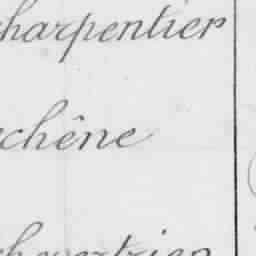 harpentier
chêne